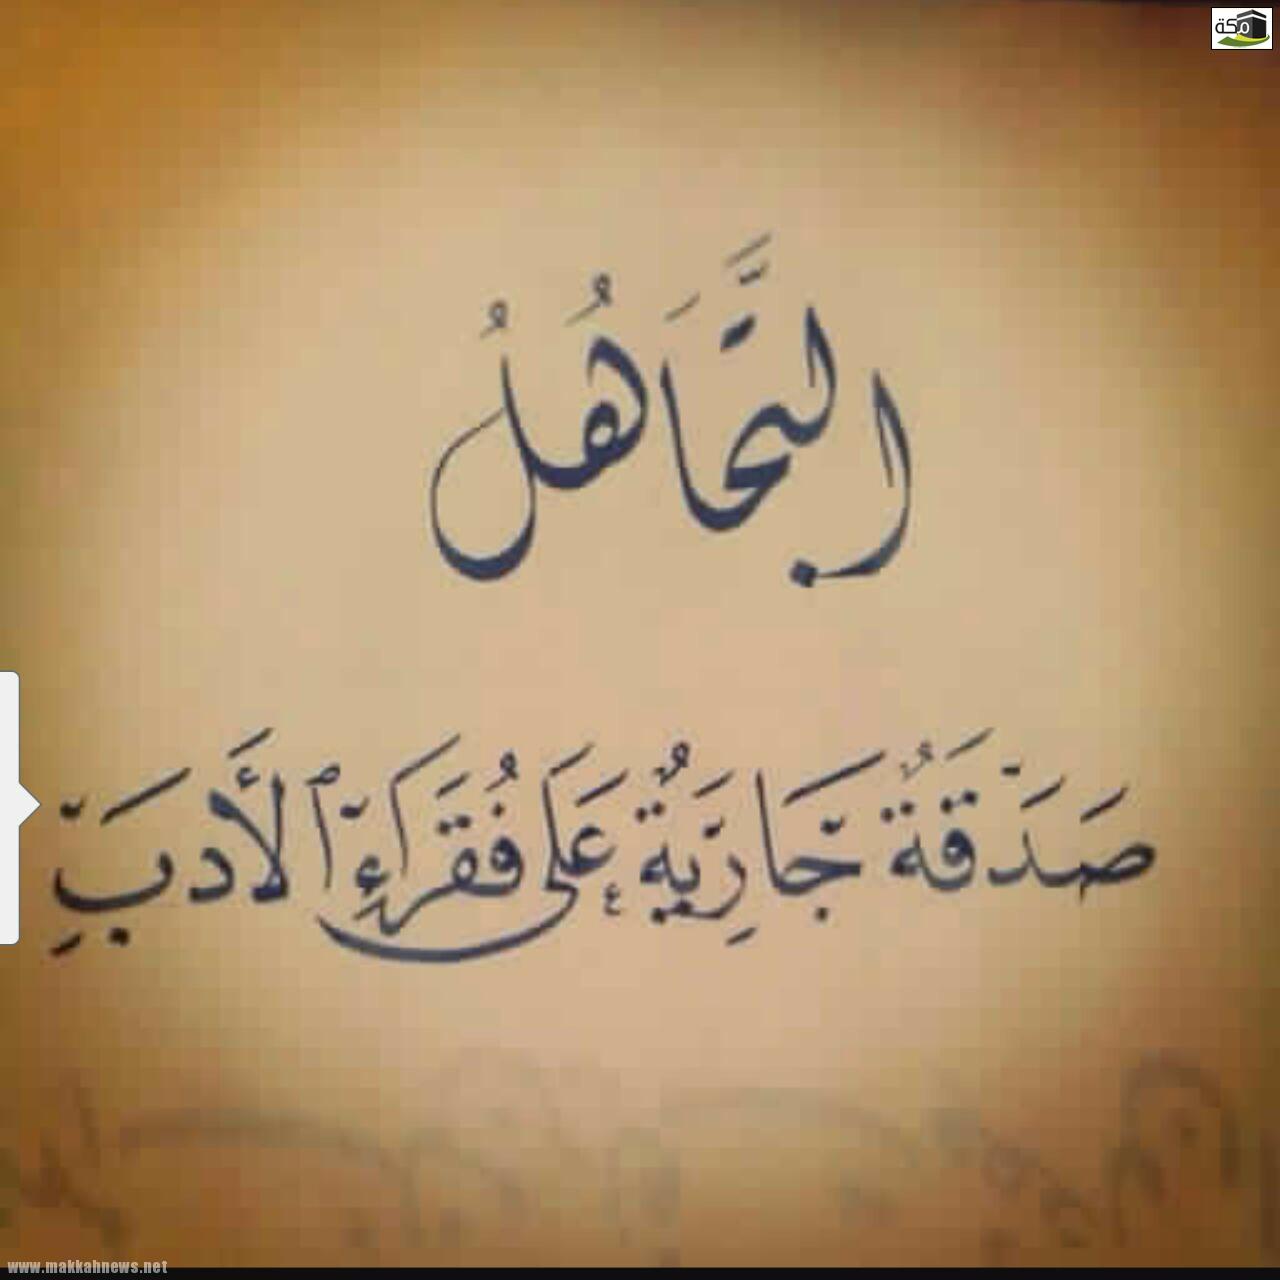 مكة
التَّجَاهُلُ
صَدَقَةٌ جَّارِيَةٌ عَلَى فُقَرَاءِ ٱلأَدَبِّ
www.makkahnews.net